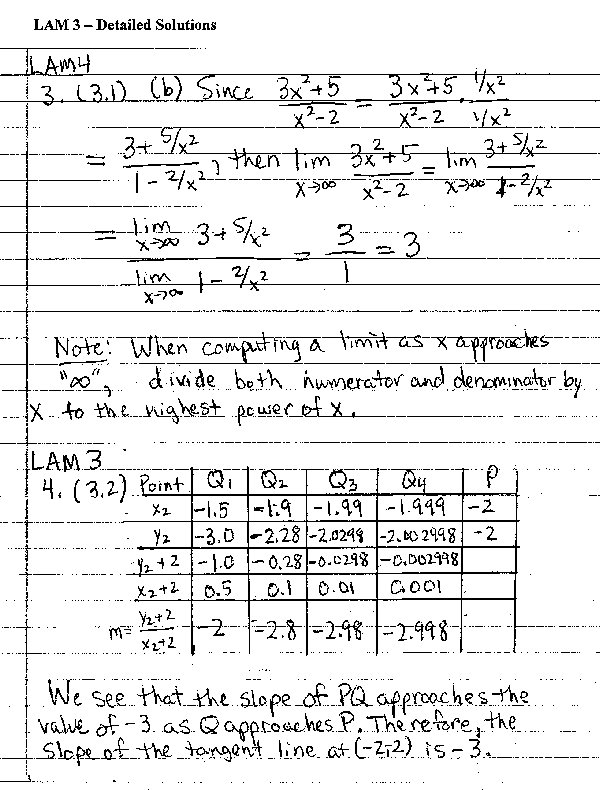 LAM 3 – Detailed Solutions
LAM4
3. (3.1) (b) Since (3x²+5)/(x²-2) = (3x²+5)/(x²-2) · (1/x²)/(1/x²)
= (3+5/x²)/(1-2/x²), then lim x→∞ (3x²+5)/(x²-2) = lim x→∞ (3+5/x²)/(1-2/x²)
= (lim x→∞ 3+5/x²)/(lim x→∞ 1-2/x²) = 3/1 = 3
Note: When computing a limit as x approaches
"∞", divide both numerator and denominator by
x to the highest power of x.
LAM 3
4. (3.2) Point Q1 Q2 Q3 Q4 P
x2 -1.5 -1.9 -1.99 -1.999 -2
y2 -3.0 -2.28 -2.0298 -2.002998 -2
y2+2 -1.0 -0.28 -0.0298 -0.002998
x2+2 0.5 0.1 0.01 0.001
m= (y2+2)/(x2+2) -2 -2.8 -2.98 -2.998
We see that the slope of PQ approaches the
value of -3 as Q approaches P. Therefore, the
slope of the tangent line at (-2,-2) is -3.